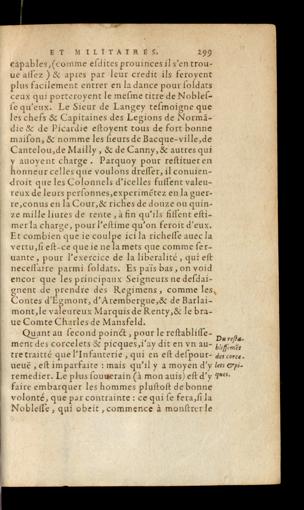 ET MILITAIRES. 299
capables, (comme esdites prouinces il s'en trou-
ue assez) & apres par leur credit ils feroyent
plus facilement entrer en la dance pour soldats
ceux qui porteroyent le mesme titre de Nobles-
se qu'eux. Le Sieur de Langey tesmoigne que
les chefs & Capitaines des Legions de Normã-
die & de Picardie estoyent tous de fort bonne
maison, & nomme les sieurs de Bacque-ville, de
Cantelou, de Mailly, & de Canny, & autres qui
y auoyent charge. Parquoy pour restituer en
honneur celles que voulons dresser, il conuien-
droit que les Colonnels d'icelles fussent valeu-
reux de leurs personnes, experimẽtez en la guer-
re, conus en la Cour, & riches de douze ou quin-
ze mille liures de rente, à fin qu'ils fissent esti-
mer la charge, pour l'estime qu'on feroit d'eux.
Et combien que ie coulpe ici la richesse auec la
vertu, si est-ce que ie ne la mets que comme ser-
uante, pour l'exercice de la liberalité, qui est
necessaire parmi soldats. Es païs bas, on void
encor que les principaux Seigneurs ne desdai-
gnent de prendre des Regimens, comme les
Contes d'Egmont, d'Arembergue, & de Barlai-
mont, le valeureux Marquis de Renty, & le bra-
ue Comte Charles de Mansfeld.
Quant au second poinct, pour le restablisse-
ment des corcelets & picques, i'ay dit en vn au-
tre traitté que l'Infanterie, qui en est despour-
ueuë, est imparfaite: mais qu'il y a moyen d'y
remedier. Le plus souuerain (à mon auis) est d'y
faire embarquer les hommes plustost de bonne
volonté, que par contrainte: ce qui se fera, si la
Noblesse, qui obeit, commence à monstrer le
Du resta-
blissemẽt
des corce-
lets & pi-
ques.